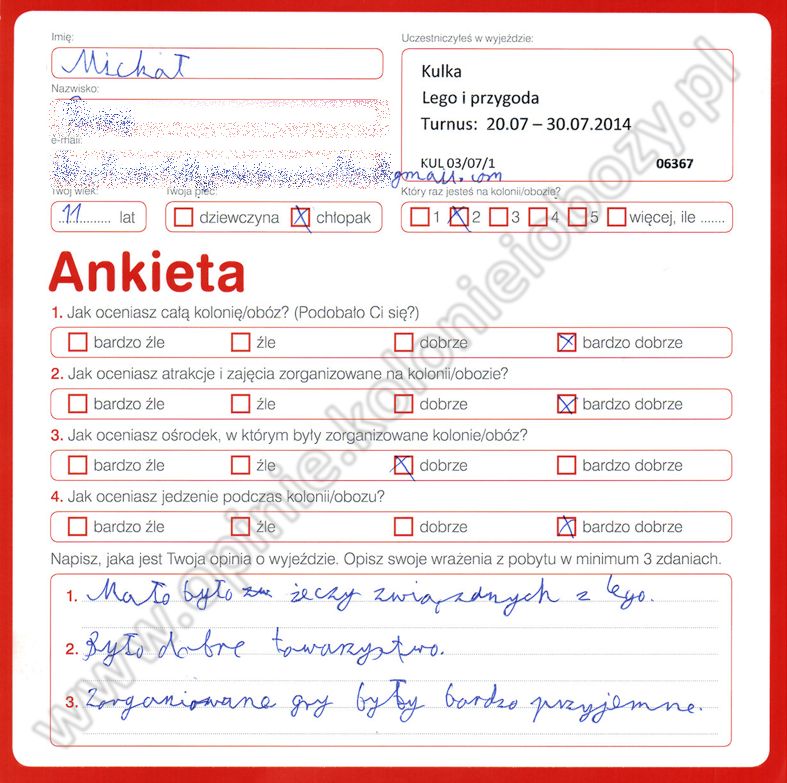 Imię:
Michał
Uczestniczyłeś w wyjeździe:
Kulka
Lego i przygoda
Turnus: 20.07 – 30.07.2014
KUL 03/07/1 06367
Nazwisko:
e-mail:
@gmail.com
Twój wiek:
11 lat
Twoja płeć:
dziewczyna chłopak
Który raz jesteś na kolonii/obozie?
1 2 3 4 5 więcej, ile .......
Ankieta
1. Jak oceniasz całą kolonię/obóz? (Podobało Ci się?)
bardzo źle źle dobrze bardzo dobrze
2. Jak oceniasz atrakcje i zajęcia zorganizowane na kolonii/obozie?
bardzo źle źle dobrze bardzo dobrze
3. Jak oceniasz ośrodek, w którym były zorganizowane kolonie/obóz?
bardzo źle źle dobrze bardzo dobrze
4. Jak oceniasz jedzenie podczas kolonii/obozu?
bardzo źle źle dobrze bardzo dobrze
Napisz, jaka jest Twoja opinia o wyjeździe. Opisz swoje wrażenia z pobytu w minimum 3 zdaniach.
1. Mało było żeczy związadnych z lego.
2. Było dobre towarzystwo.
3. Zorganiowane gry były bardzo przyjemne.
www.opinie.kolonieiobozy.pl